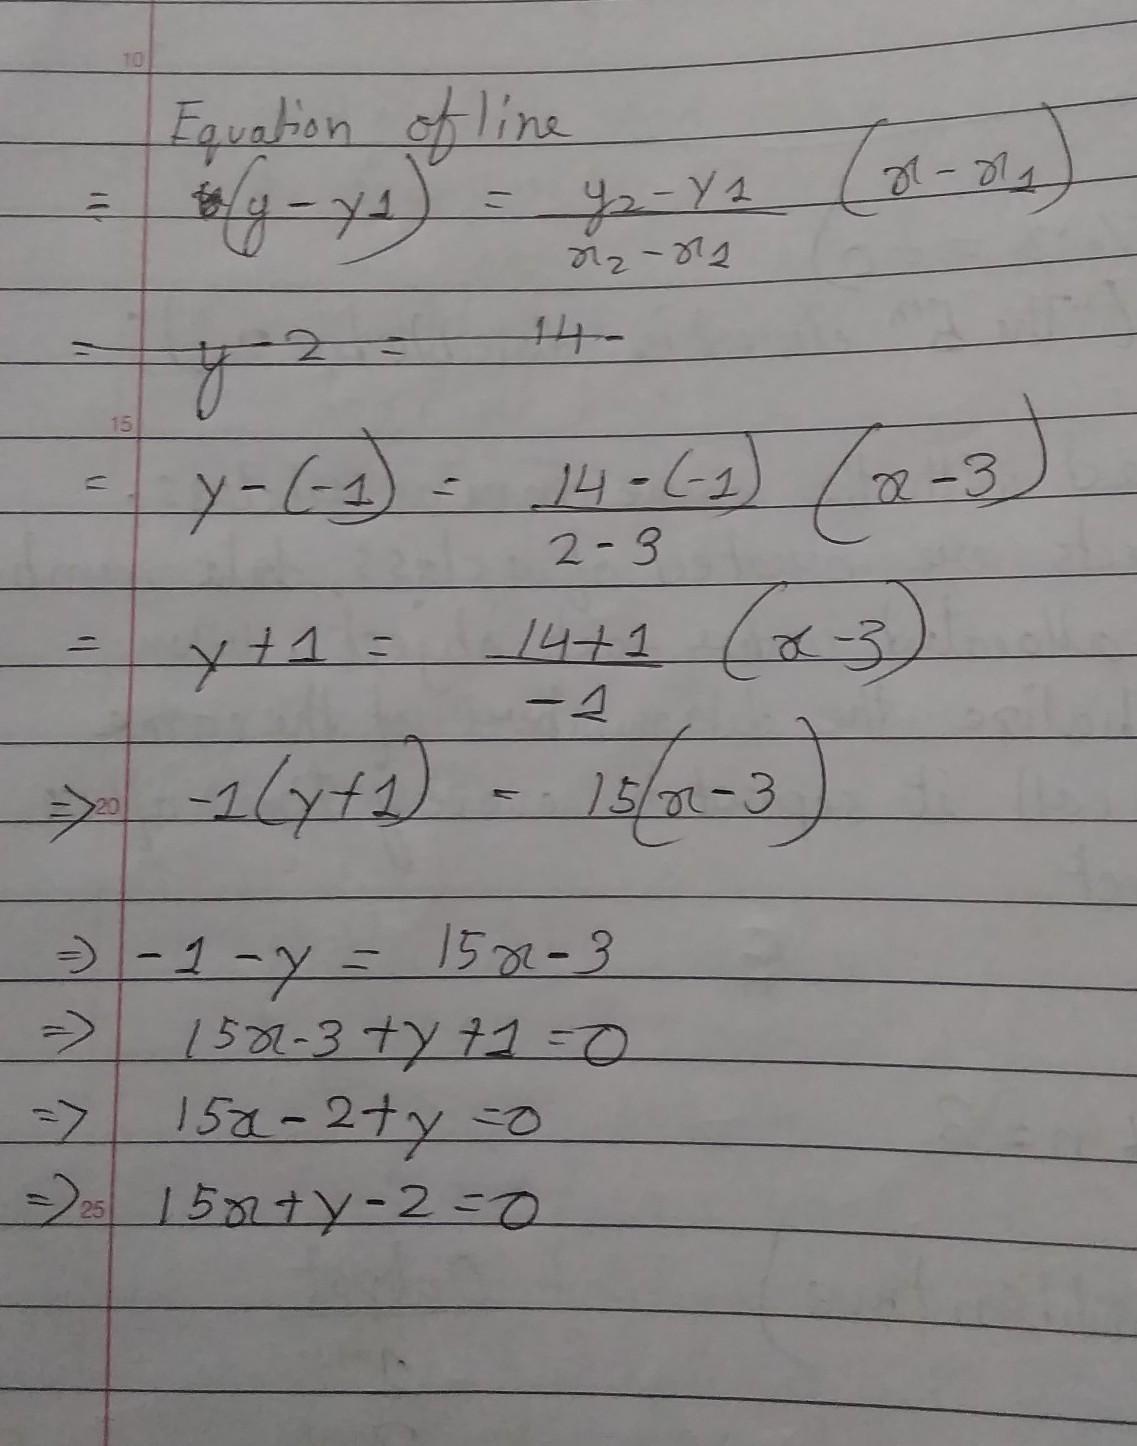 10
Equation of line
= (y - y1) = y2 - y1 / x2 - x1 (x - x1)
= y - 2 = 14 -
15
= y - (-1) = 14 - (-1) / 2 - 3 (x - 3)
= y + 1 = 14 + 1 / -1 (x - 3)
⇒ 20 -1(y + 1) = 15(x - 3)
⇒ -1 - y = 15x - 3
⇒ 15x - 3 + y + 1 = 0
⇒ 15x - 2 + y = 0
⇒ 25 15x + y - 2 = 0